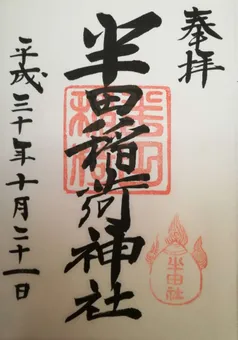 奉拝
半田稲荷神社
半田稲荷
半田社
平成三十年十月二十一日